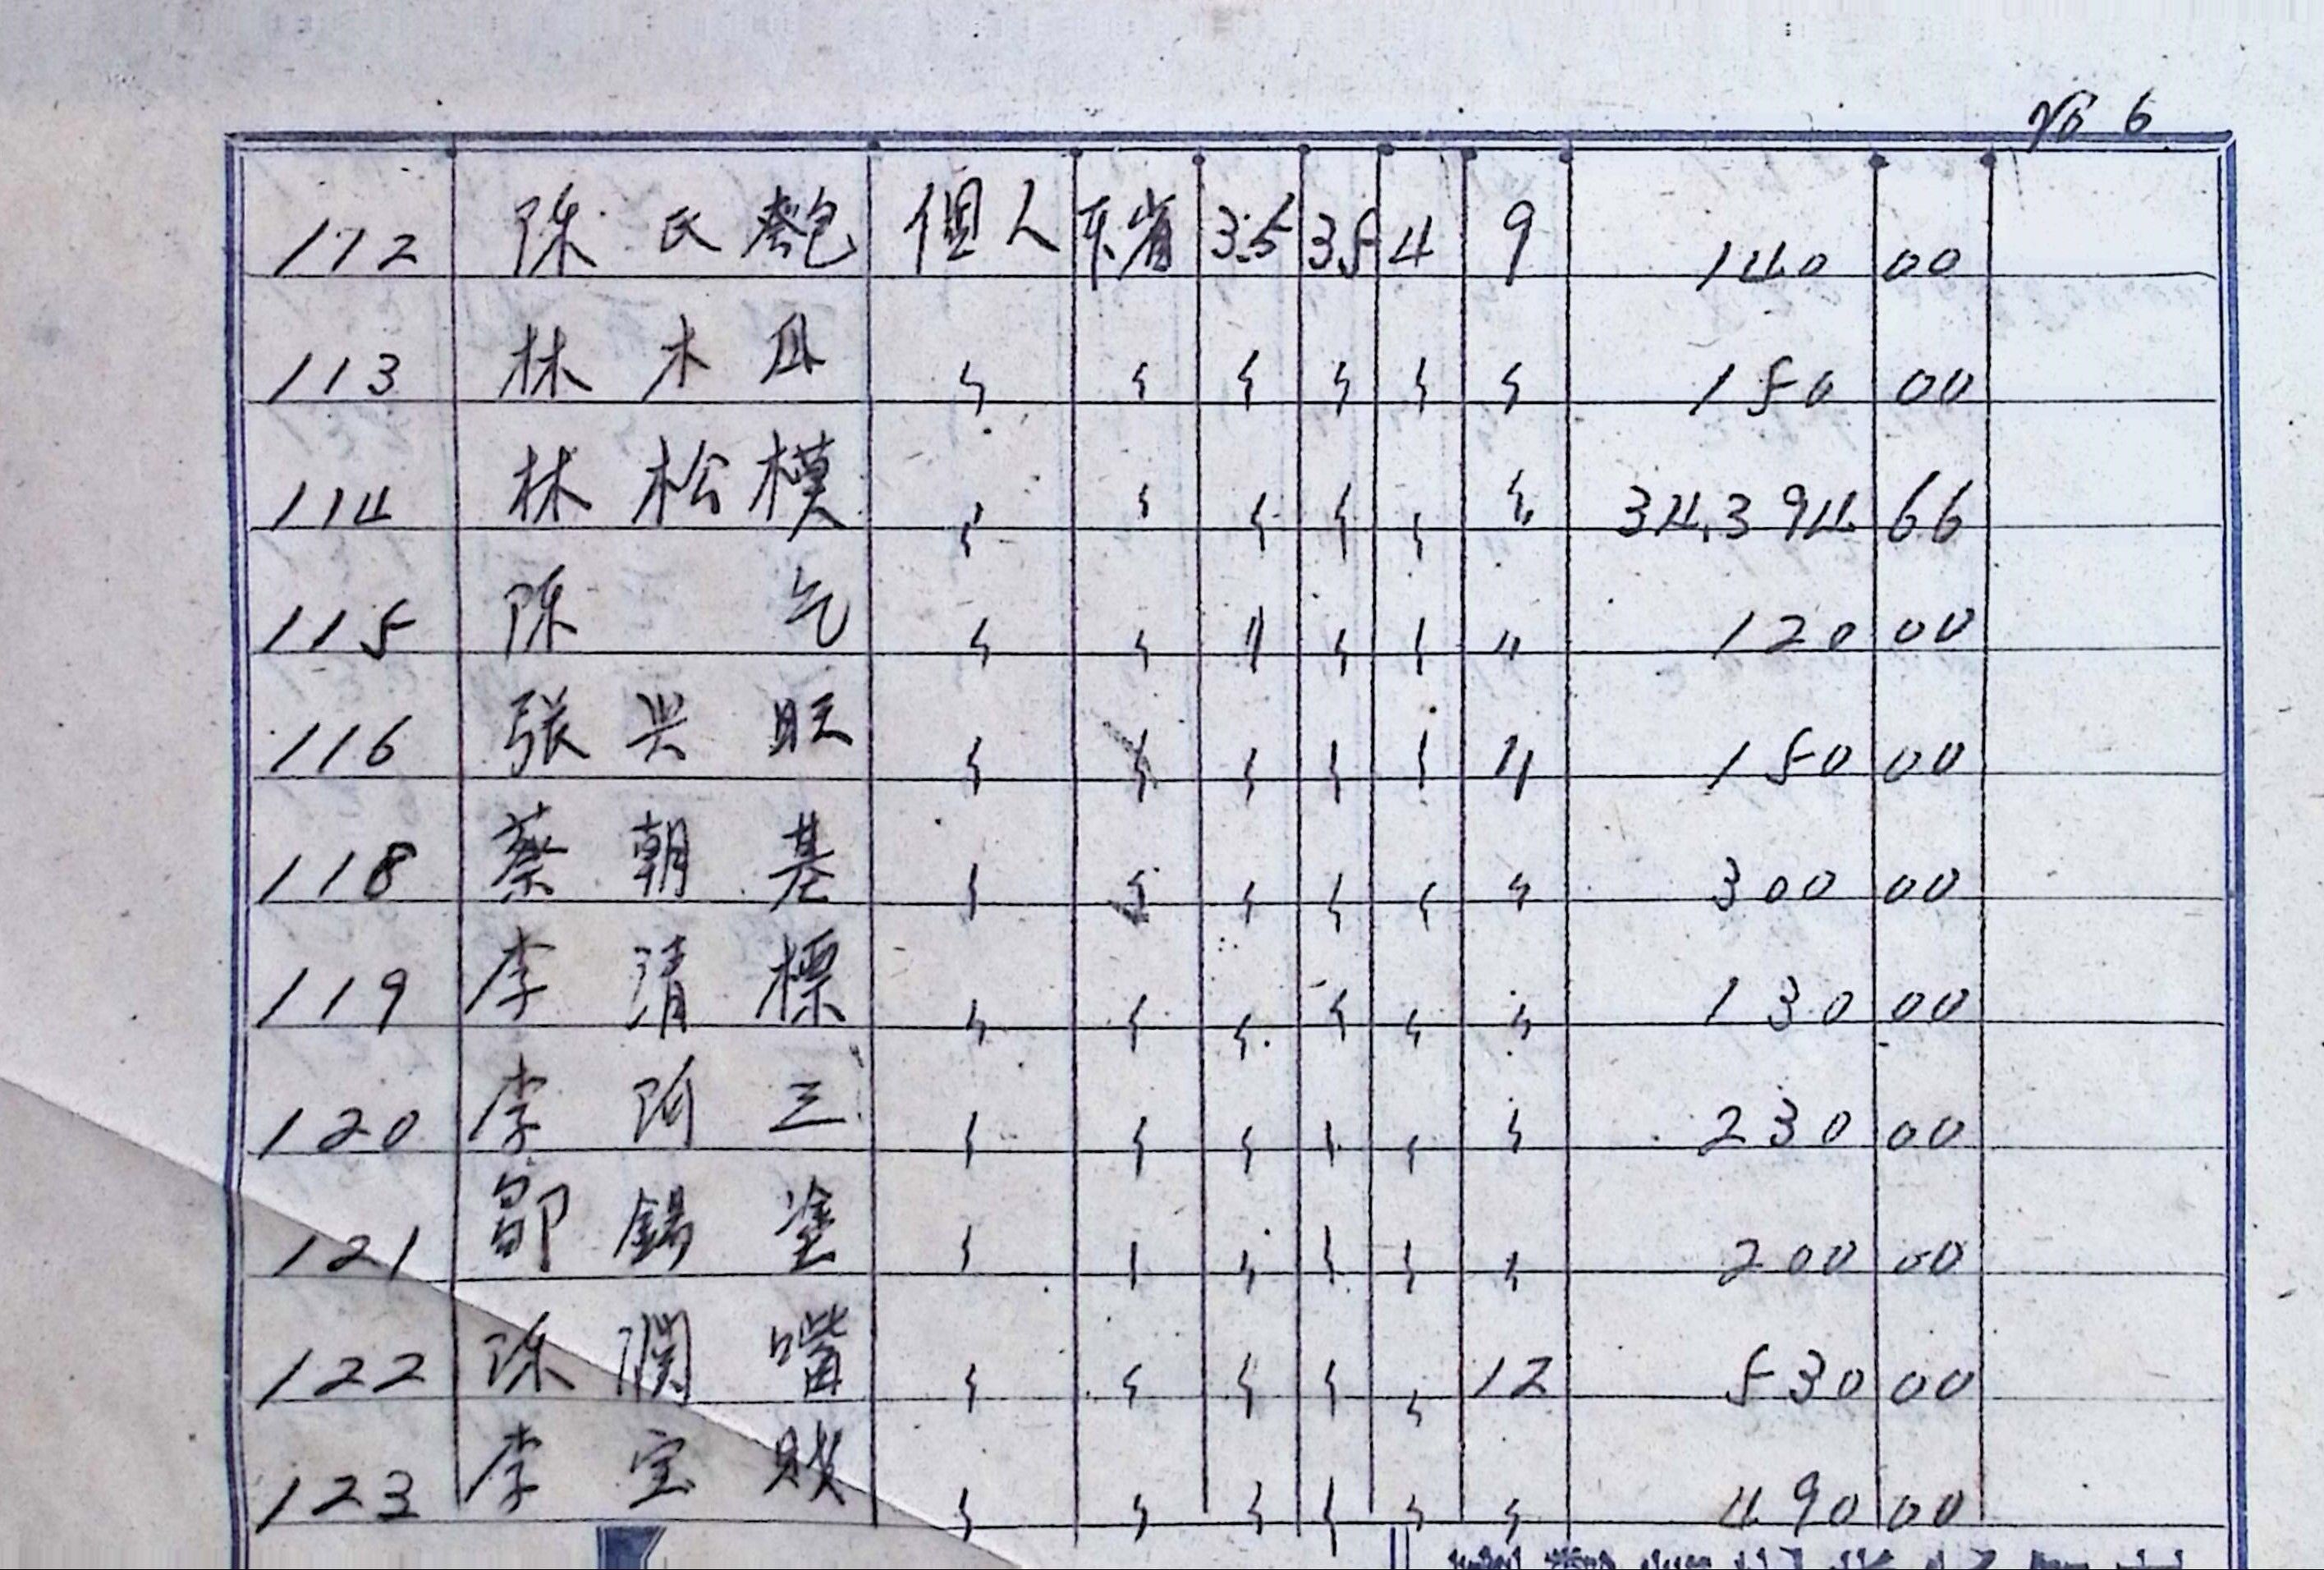 № 6
112 陈氏 個人 35 35 4 9 140 00
113 林木 〃 〃 〃 〃 〃 〃 150 00
114 林松模 〃 〃 〃 〃 〃 〃 34,394 66
115 陈 〃 〃 〃 〃 〃 〃 120 00
116 張兴旺 〃 〃 〃 〃 〃 〃 150 00
118 蔡朝基 〃 〃 〃 〃 〃 〃 300 00
119 李清標 〃 〃 〃 〃 〃 〃 130 00
120 李阿三 〃 〃 〃 〃 〃 〃 230 00
121 錫塗 〃 〃 〃 〃 〃 〃 200 00
122 陈嘴 〃 〃 〃 〃 〃 12 530 00
123 李宝 〃 〃 〃 〃 〃 〃 490 00